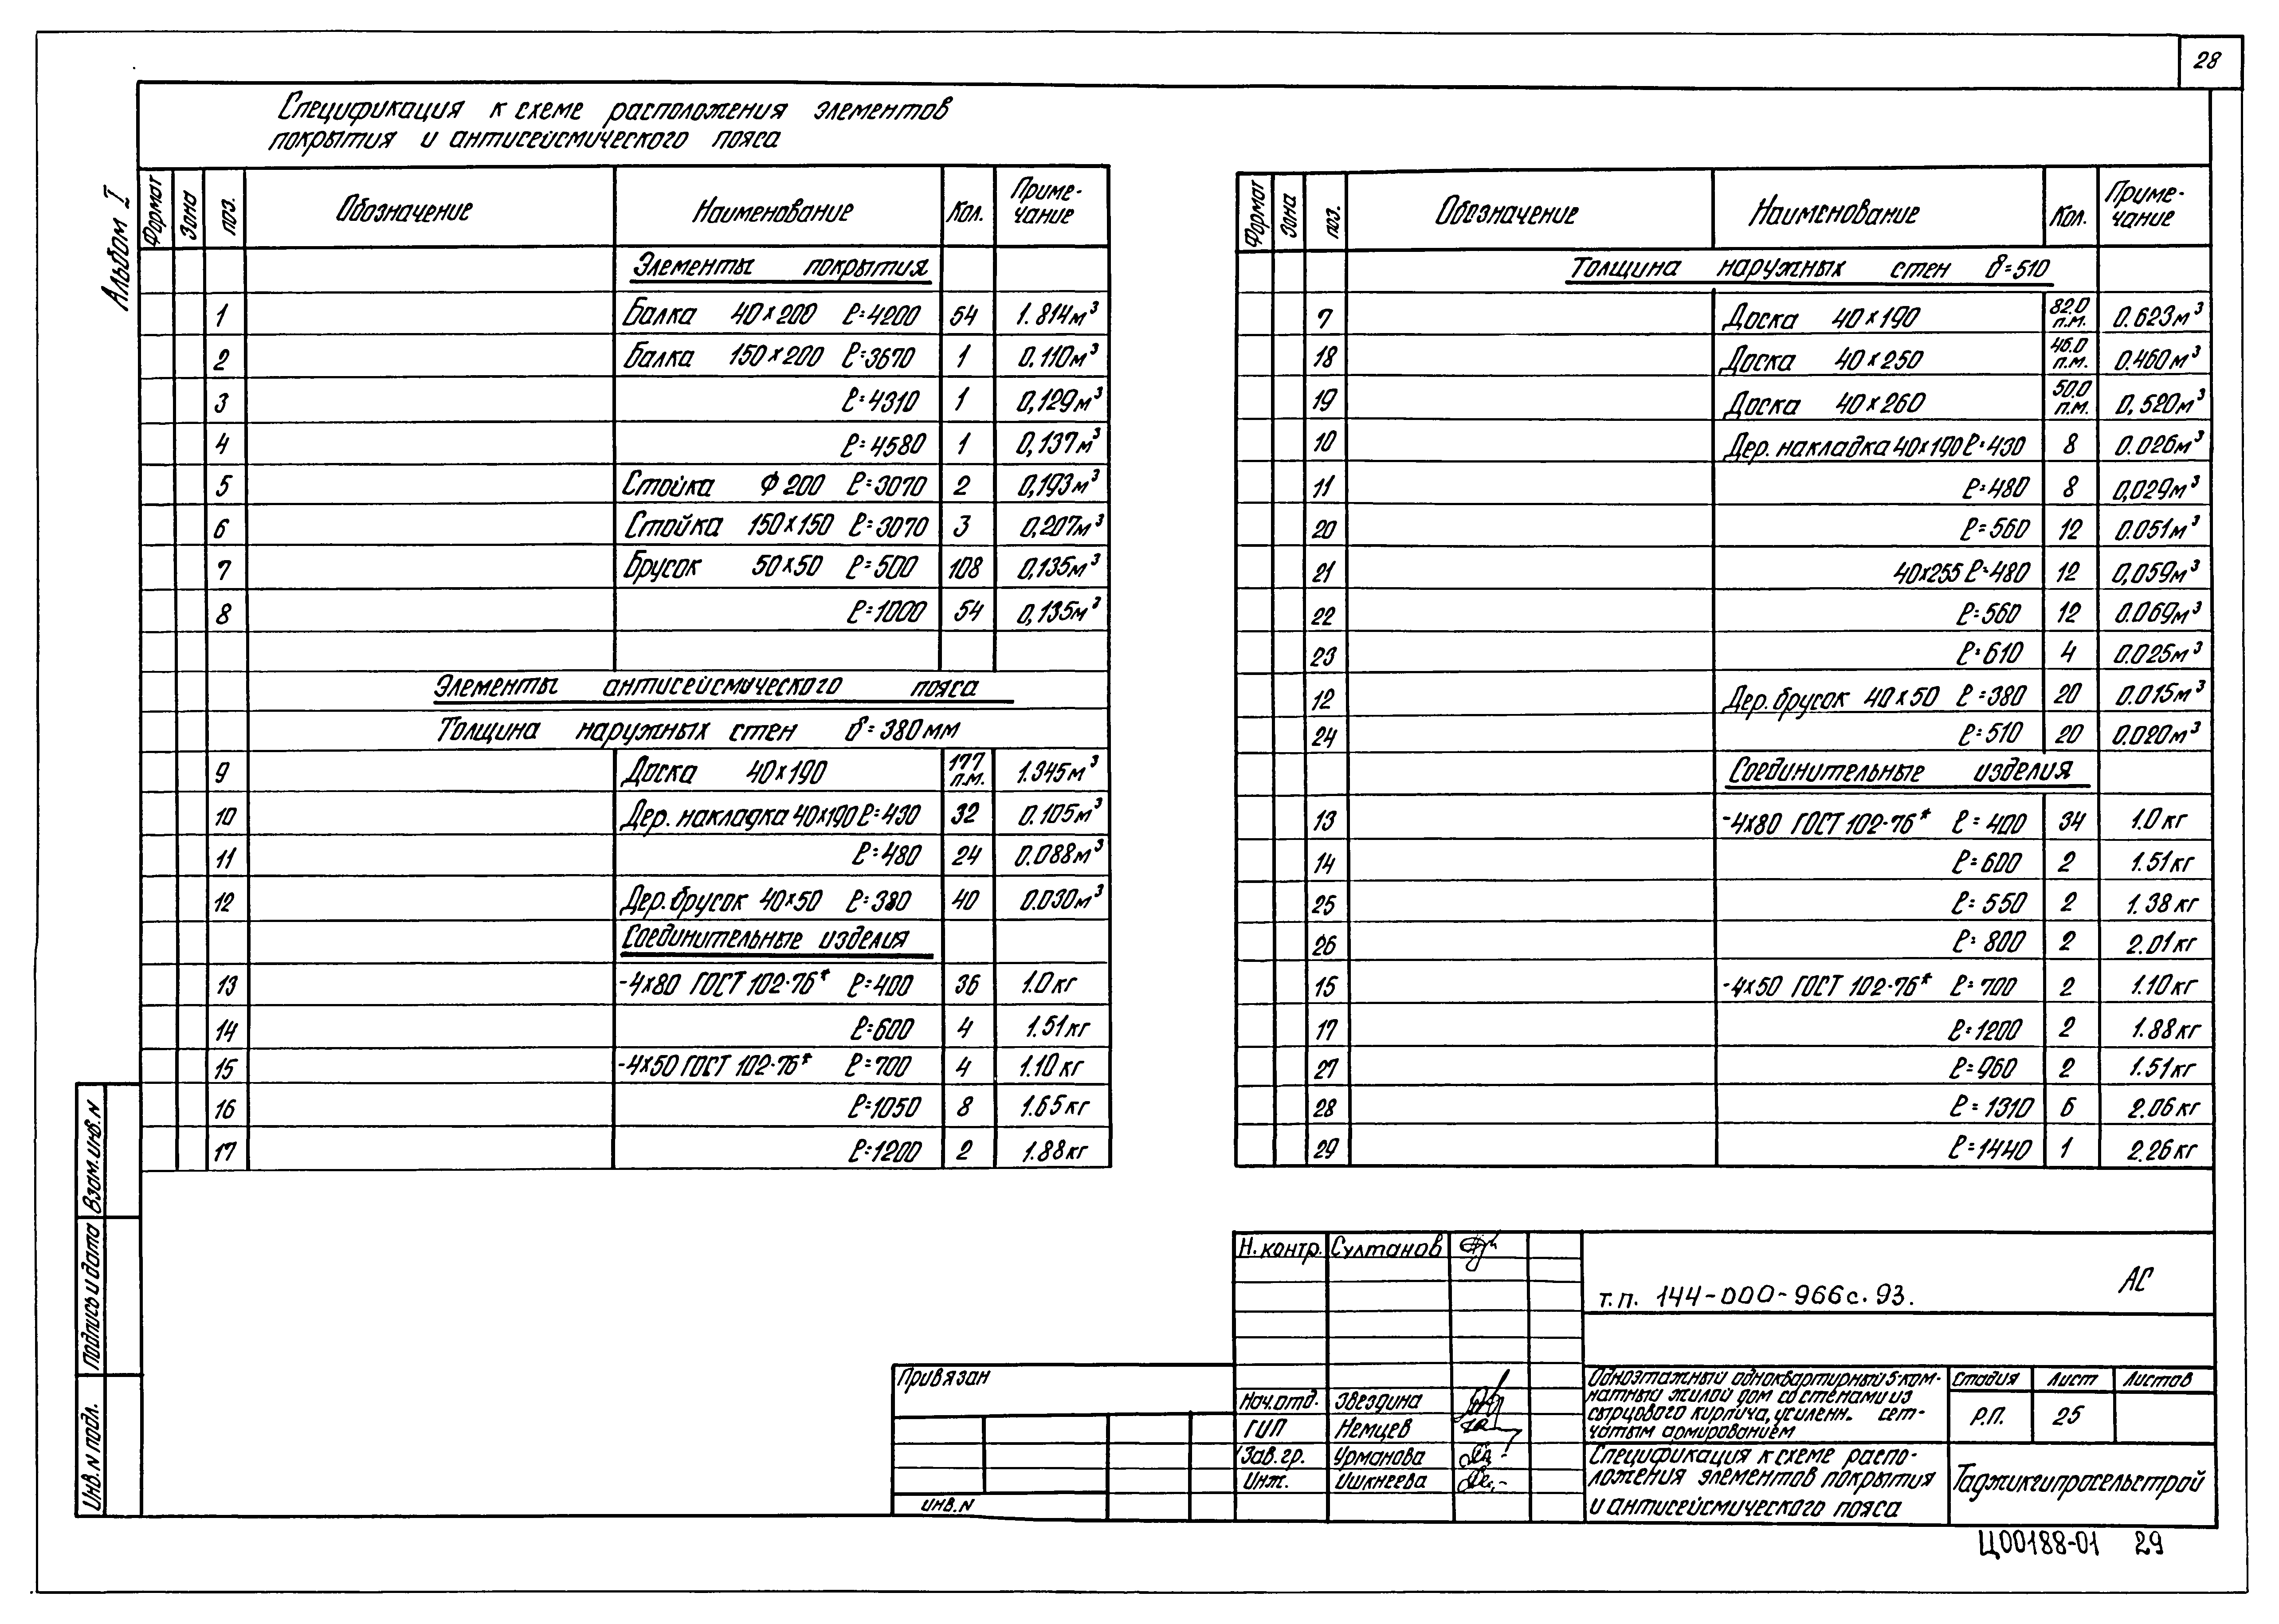 28
Альбом I
Спецификация к схеме расположения элементов
покрытия и антисейсмического пояса
Формат Зона поз. Обозначение Наименование Кол. Приме-
чание
Элементы покрытия
1 Балка 40×200 ℓ=4200 54 1.814м³
2 Балка 150×200 ℓ=3670 1 0.110м³
3 ℓ=4310 1 0,129м³
4 ℓ=4580 1 0,137м³
5 Стойка Ф200 ℓ=3070 2 0,193м³
6 Стойка 150×150 ℓ=3070 3 0,207м³
7 Брусок 50×50 ℓ=500 108 0,135м³
8 ℓ=1000 54 0,135м³
Элементы антисейсмического пояса
Толщина наружных стен δ=380мм
9 Доска 40×190 177 п.м. 1.345м³
10 Дер. накладка 40×190 ℓ=430 32 0.105м³
11 ℓ=480 24 0.088м³
12 Дер. брусок 40×50 ℓ=380 40 0.030м³
Соединительные изделия
13 -4×80 ГОСТ 102-76* ℓ=400 36 1.0кг
14 ℓ=600 4 1.51кг
15 -4×50 ГОСТ 102-76* ℓ=700 4 1.10кг
16 ℓ=1050 8 1.65кг
17 ℓ=1200 2 1.88кг
Формат Зона поз. Обозначение Наименование Кол. Приме-
чание
Толщина наружных стен δ=510
7 Доска 40×190 82.0 п.м. 0.623м³
18 Доска 40×250 46.0 п.м. 0.460м³
19 Доска 40×260 50.0 п.м. 0,520м³
10 Дер. накладка 40×190 ℓ=430 8 0.026м³
11 ℓ=480 8 0,029м³
20 ℓ=560 12 0.051м³
21 40×255 ℓ=480 12 0,059м³
22 ℓ=560 12 0.069м³
23 ℓ=610 4 0.025м³
12 Дер. брусок 40×50 ℓ=380 20 0.015м³
24 ℓ=510 20 0.020м³
Соединительные изделия
13 -4×80 ГОСТ 102-76* ℓ=400 34 1.0кг
14 ℓ=600 2 1.51кг
25 ℓ=550 2 1.38кг
26 ℓ=800 2 2.01кг
15 -4×50 ГОСТ 102-76* ℓ=700 2 1.10кг
17 ℓ=1200 2 1.88кг
27 ℓ=960 2 1.51кг
28 ℓ=1310 6 2.06кг
29 ℓ=1440 1 2.26кг
Взам. инв. N
Подпись и дата
Инв. N подл.
Привязан
ИНВ. N
Н. контр. Султанов
Нач. отд. Звездина
ГИП Немцев
Зав. гр. Урманова
Инж. Ишкнеева
т.п. 144-000-966с.93. АС
Одноэтажный одноквартирный 5-ком-
натный жилой дом со стенами из
сырцового кирпича, усиленн. сет-
чатым армированием
Стадия Лист Листов
Р.П. 25
Спецификация к схеме распо-
ложения элементов покрытия
и антисейсмического пояса
Таджикгипросельстрой
Ц00188-01 29